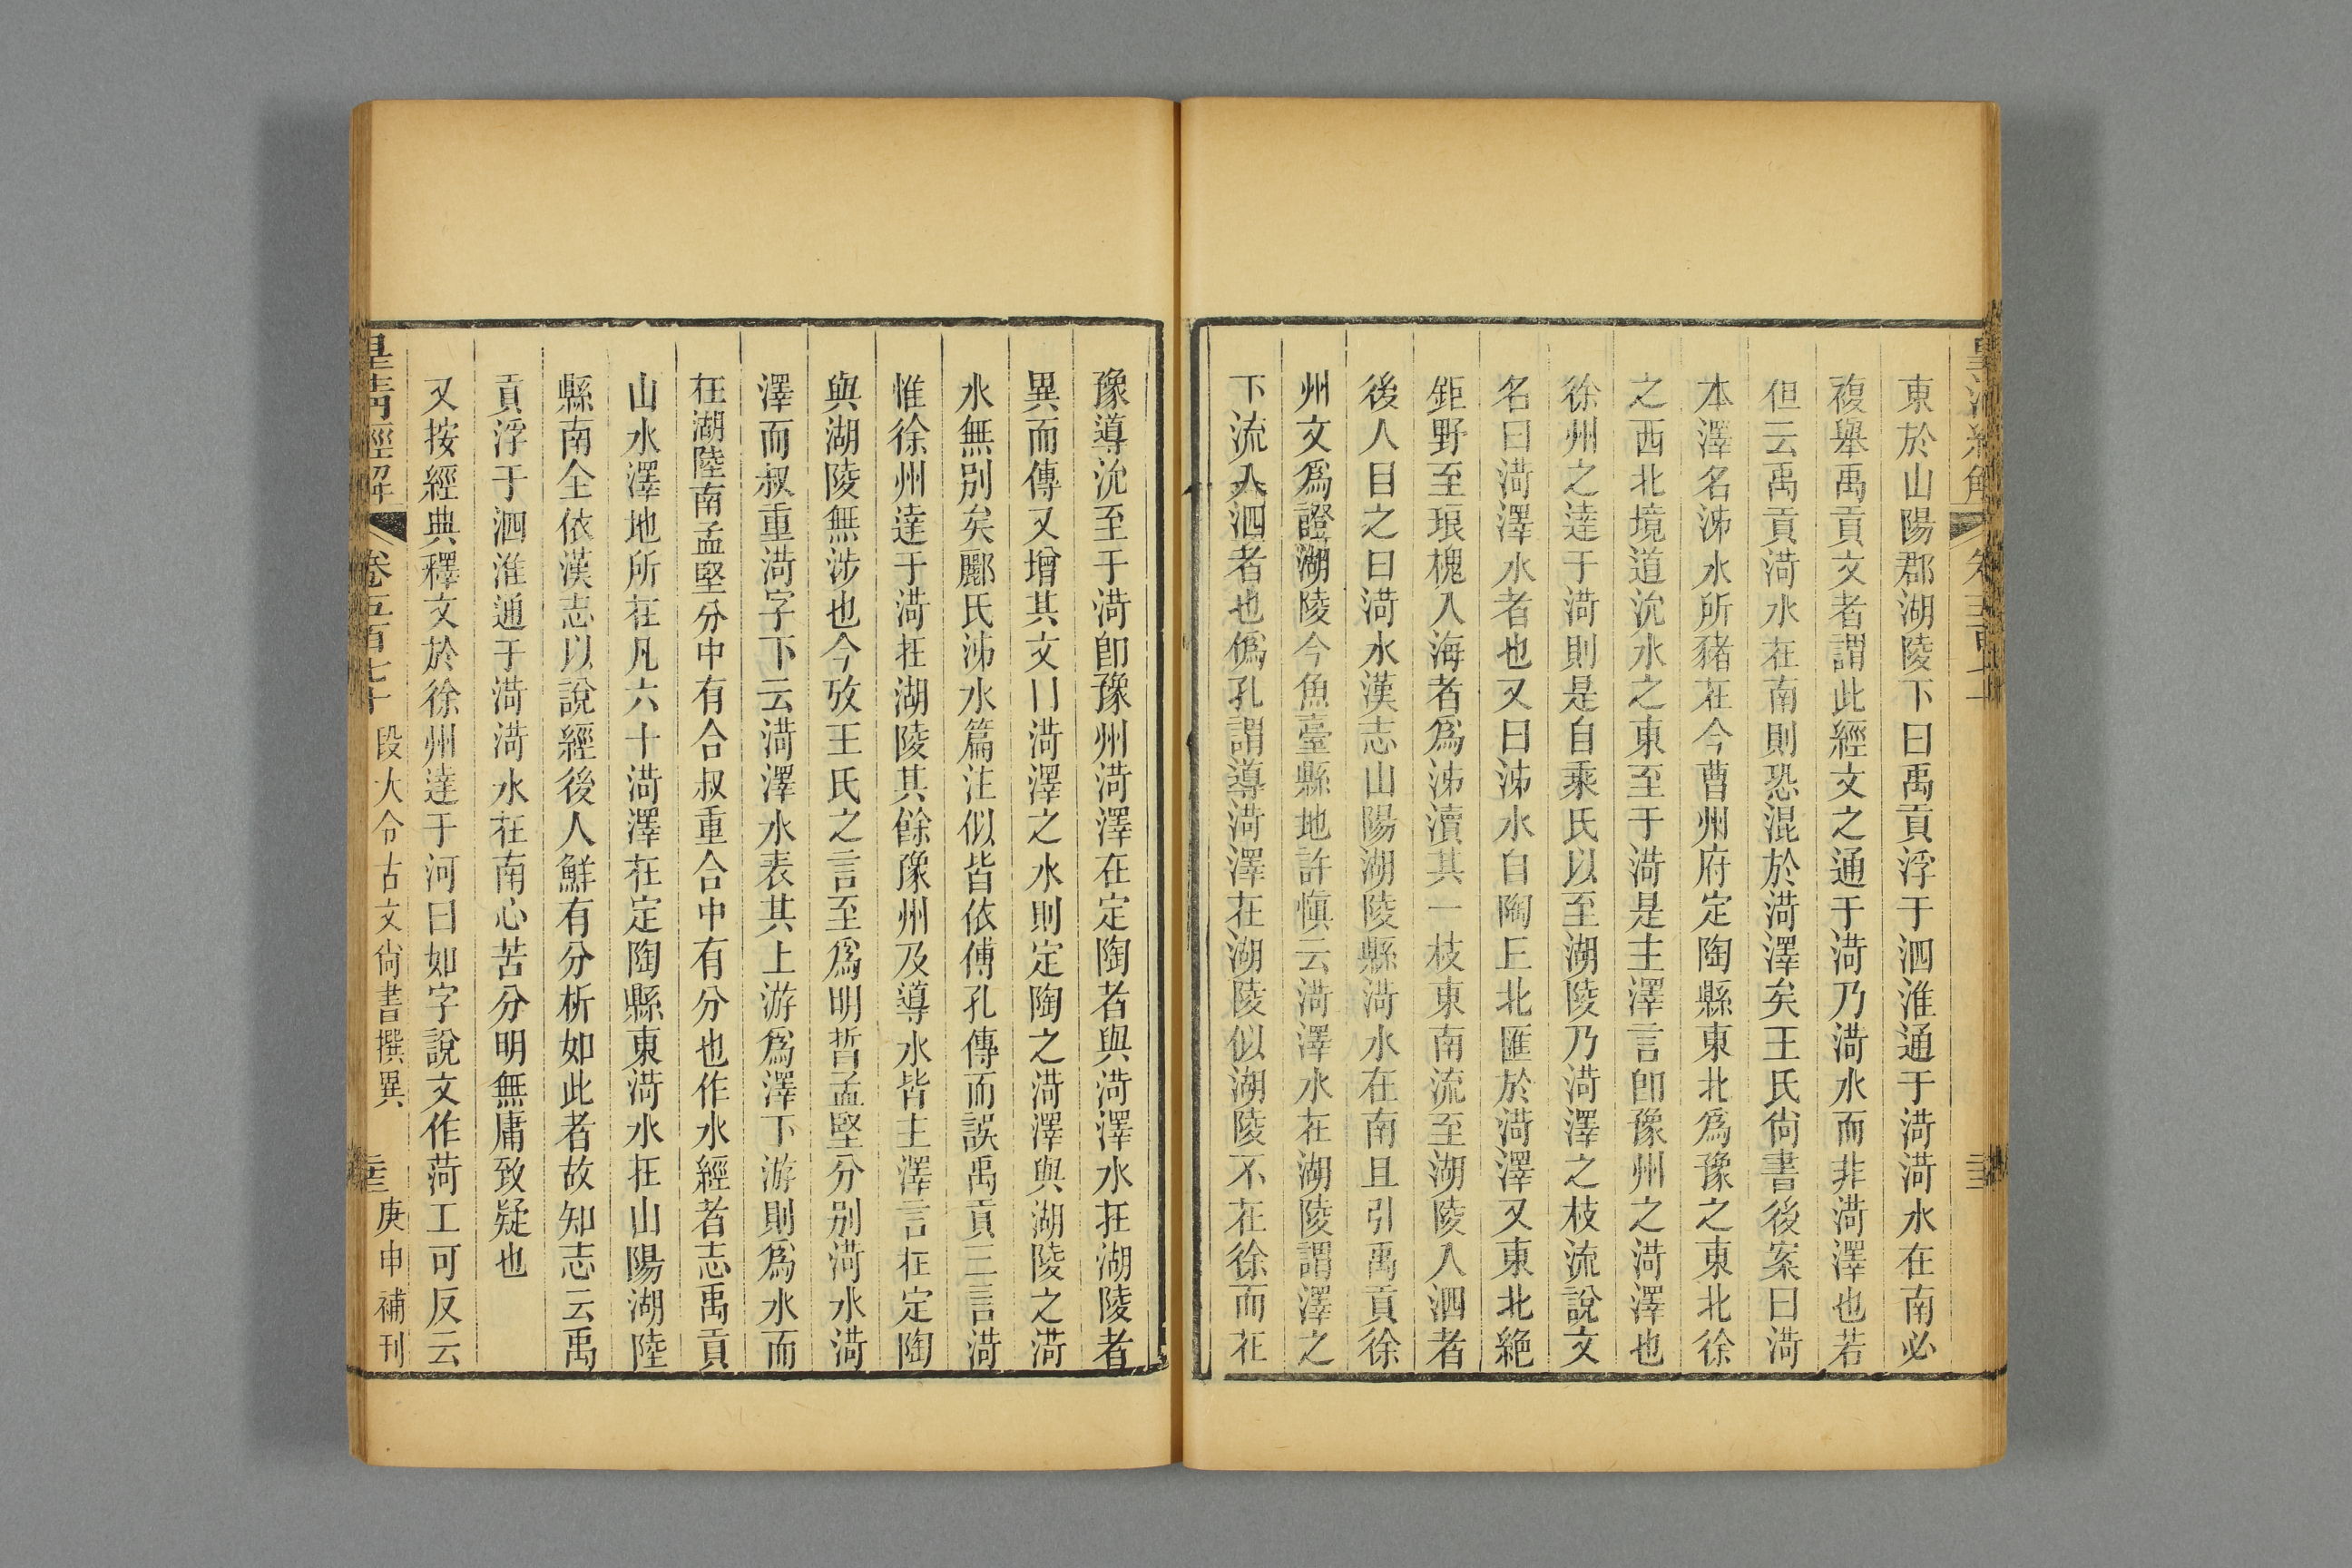 東於山陽郡湖陵下曰禹貢浮于泗淮通于渮渮水在南必
複舉禹貢文者謂此經文之通于渮乃渮水而非渮澤也若
但云禹貢渮水在南則恐混於渮澤矣王氏尙書後案曰渮
本澤名泲水所豬在今曹州府定陶縣東北爲豫之東北徐
之西北境道沇水之東至于渮是主澤言卽豫州之渮澤也
徐州之達于渮則是自乘氏以至湖陵乃渮澤之枝流說文
名曰渮澤水者也又曰泲水自陶丘北匯於渮澤又東北絶
鉅野至琅槐入海者爲泲瀆其一枝東南流至湖陵入泗者
後人目之曰渮水漢志山陽湖陵縣渮水在南且引禹貢徐
州文爲證湖陵今魚臺縣地許愼云渮澤水在湖陵謂澤之
下流入泗者也僞孔謂導渮澤在湖陵似湖陵不在徐而在
豫導沇至于渮卽豫州渮澤在定陶者與渮澤水在湖陵者
異而傳又增其文曰渮澤之水則定陶之渮澤與湖陵之渮
水無別矣酈氏泲水篇注似皆依傅孔傳而誤禹貢三言渮
惟徐州達于渮在湖陵其餘豫州及導水皆主澤言在定陶
與湖陵無涉也今攷王氏之言至爲明晳孟堅分別渮水渮
澤而叔重渮字下云渮澤水表其上游爲澤下游則爲水而
在湖陸南孟堅分中有合叔重合中有分也作水經者志禹貢
山水澤地所在凡六十渮澤在定陶縣東渮水在山陽湖陸
縣南全依漢志以說經後人鮮有分析如此者故知志云禹
貢浮于泗淮通于渮渮水在南心苦分明無庸致疑也
又按經典釋文於徐州達于河曰如字說文作菏工可反云
皇淸經解 卷五百七十 段大令古文尙書撰異 三 庚申補刊